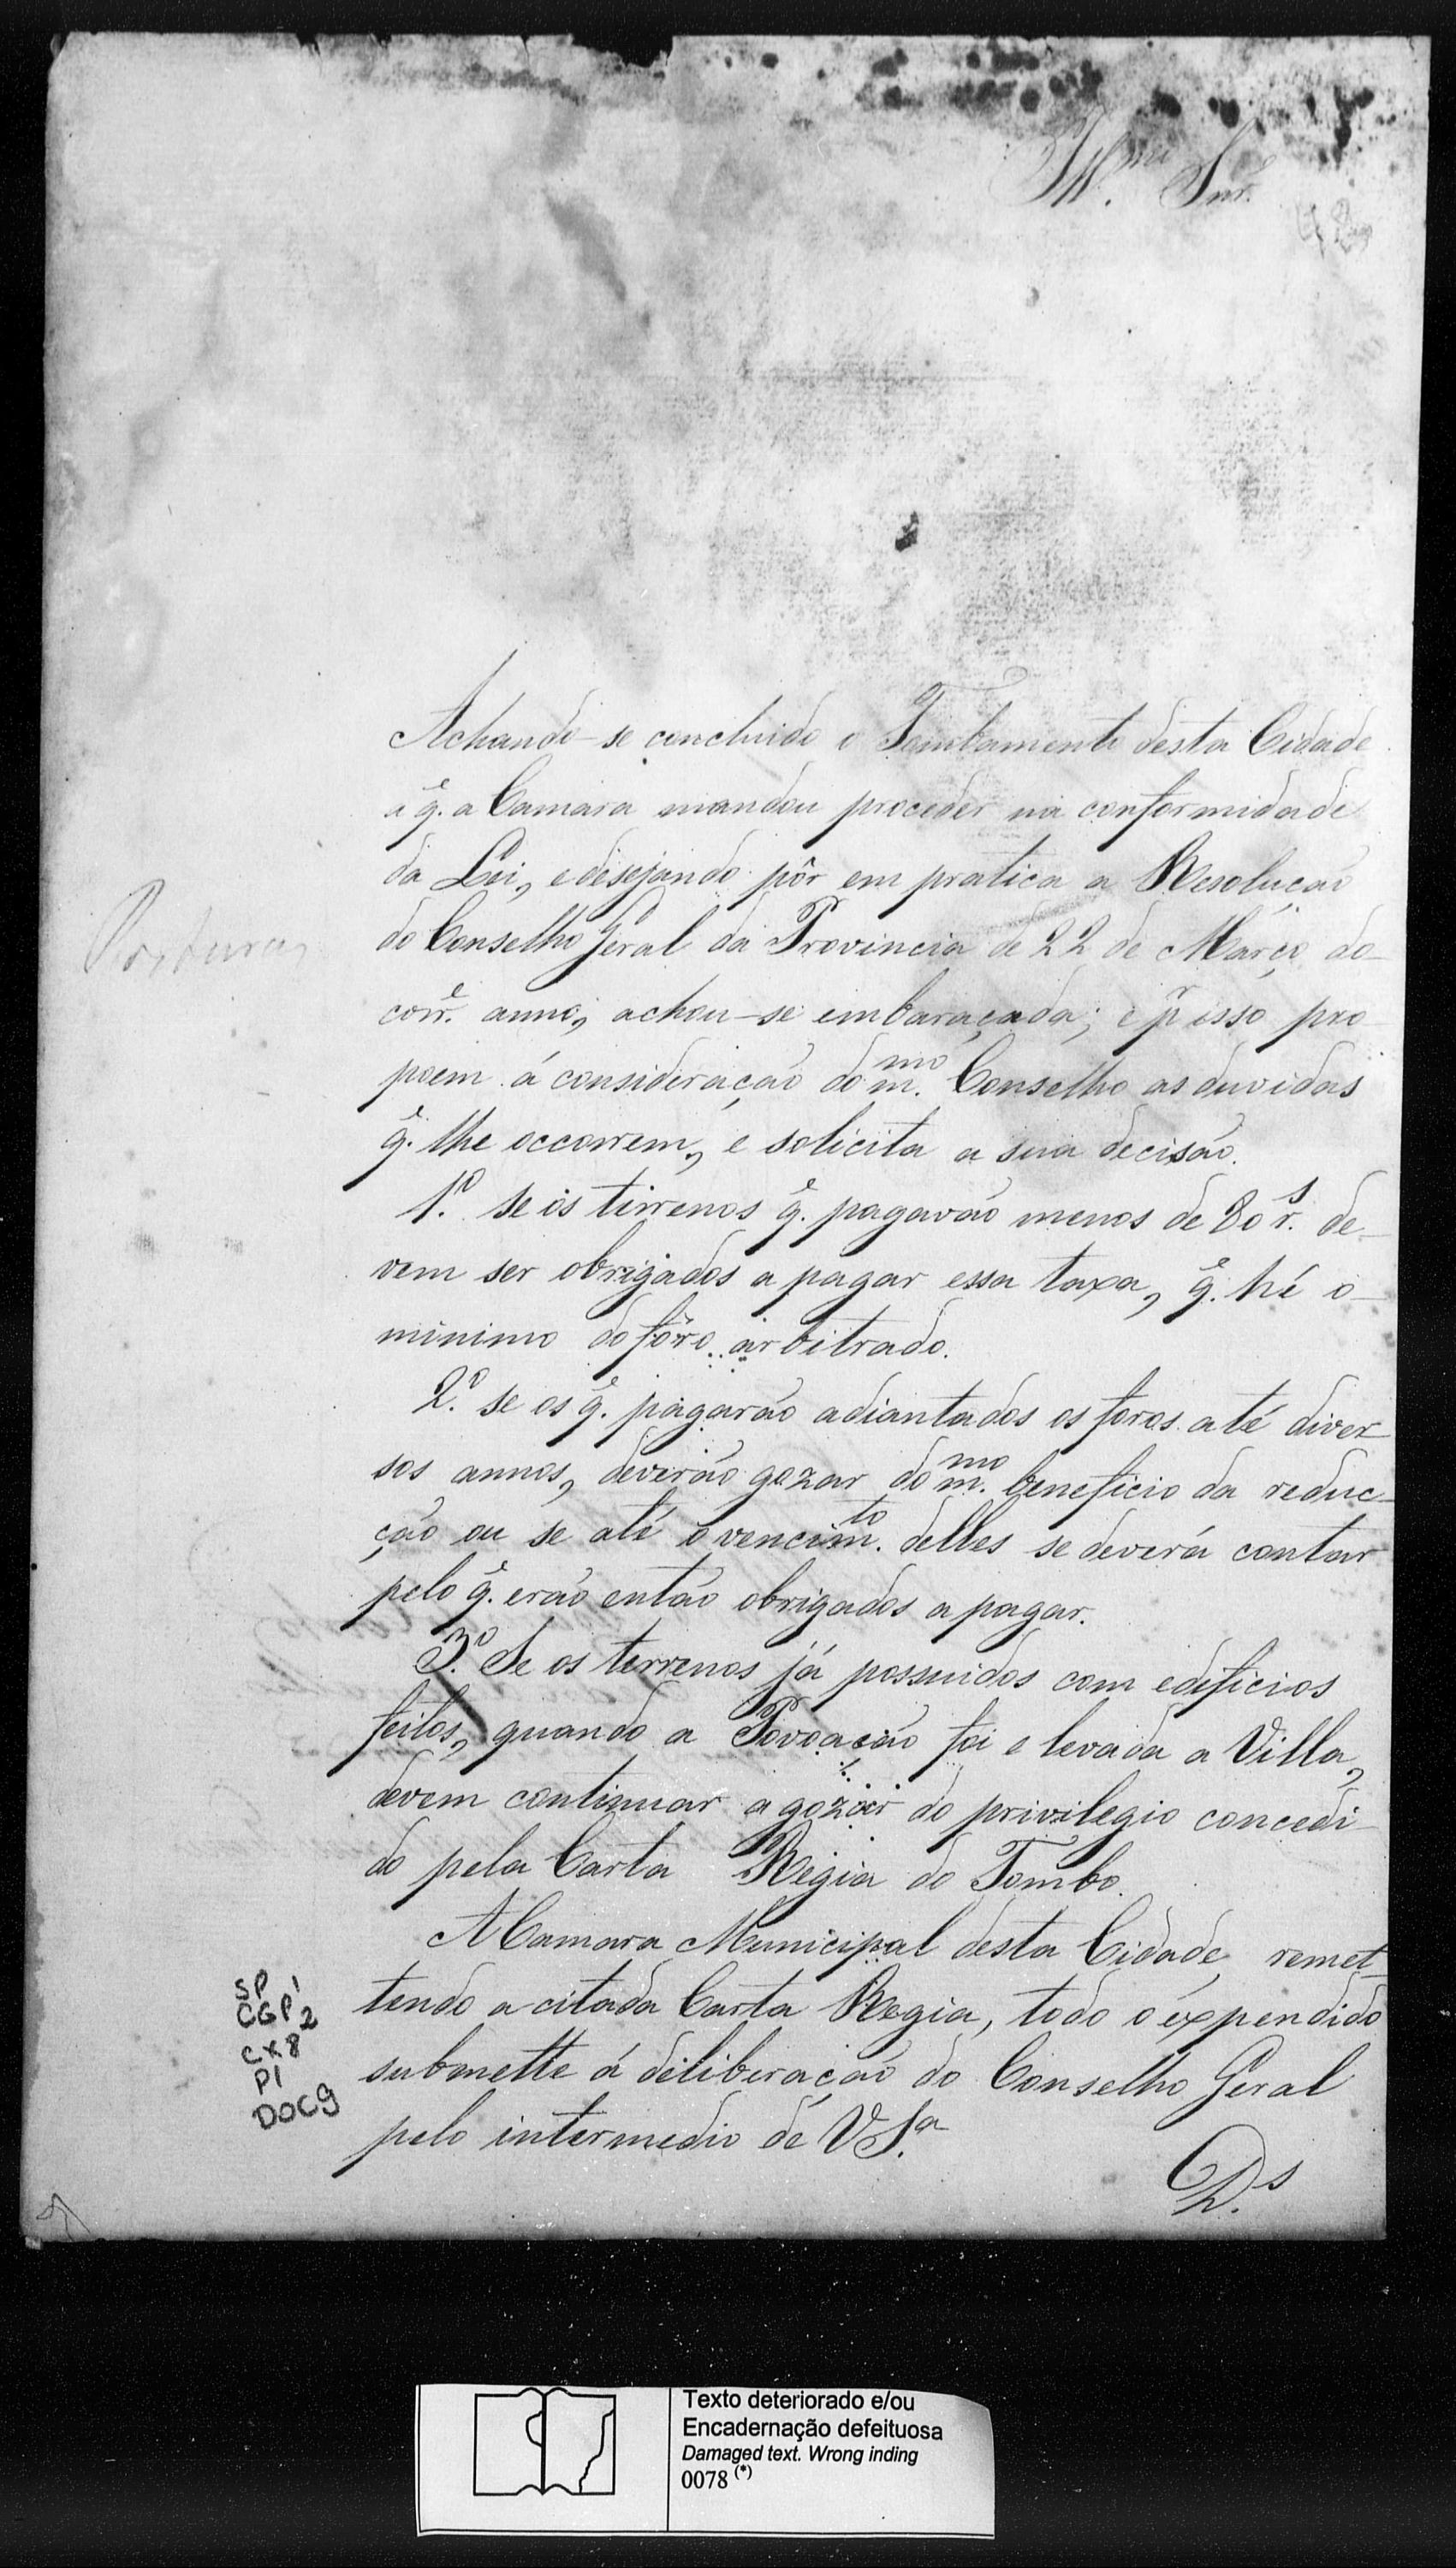 Ill.mo Snr.
42
Achando-se concluido o Tombamento desta Cidade
a q.e a Camara mandou proceder na conformidade
da Lei, e desejando pôr em pratica a Resolução
do Conselho Geral da Provincia de 22 de Março do
corr.e anno, achou-se embaraçada; e p.r isso pro
poem á consideração do m.mo Conselho as duvidas
q.e lhe occorrem, e solicita a sua decisão.
1.o Se os terrenos q.e pagavão menos de 80 r.s de-
vem ser obrigados a pagar essa taxa, q.e hé o
minimo do fôro arbitrado.
2.o Se os q.e pagarão adiantados os foros até diver
sos annos, deverão gozar do m.mo beneficio da reduc-
ção ou se até o vencim.to delles se deverá contar
pelo q.e erão então obrigados a pagar.
3.o Se os terrenos já possuidos com edificios
feitos, quando a Povoação foi elevada a Villa,
devem continuar a gozar do privilegio concedi
do pela Carta Regia do Tombo.
A Camara Municipal desta Cidade remet-
tendo a citada Carta Regia, todo o expendido
submette á deliberação do Conselho Geral
pelo intermedio de V S.a
D.s
Posturas
SP
CGP1 2
CX8
P1
DOC9
Texto deteriorado e/ou
Encadernação defeituosa
Damaged text. Wrong inding
0078 (*)